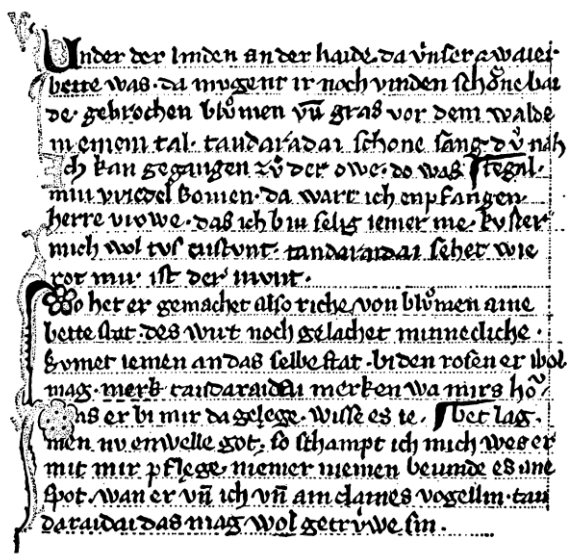 Under der linden an der haide. da vnser zwaier
bette was. da mugent ir noch vinden schone bai
de. gebrochen blůmen vn̄ gras vor dem walde
in einem tal. tandaradai schone sang dv̓ nah
Ich kan gegangen zv̊ der owe. do was tegal.
min vriedel komen. da wart ich enpfangen.
herre vrowe. das ich bin selig iemer me. kuster
mich wol tvsentstunt. tandaradai sehet wie
rot mir ist der munt.
Do het er gemachet also riche, von blůmen aine
bette stat. des wirt noch gelachet minnecliche.
kumet iemen an das selbe stat. bi den rosen er wol
mag. merk tandaradai merken wa mirs ho᷑
Das er bi mir da gelege. wisse es ie. bet lag.
men nv enwelle got. so schampt ich mich. wes er
mit mir pflege. niemer niemen bevinde es ane
spot. wan er vn̄ ich vn̄ ain claines vogellin. tan
daradai das mag wol getrẏwe sin.